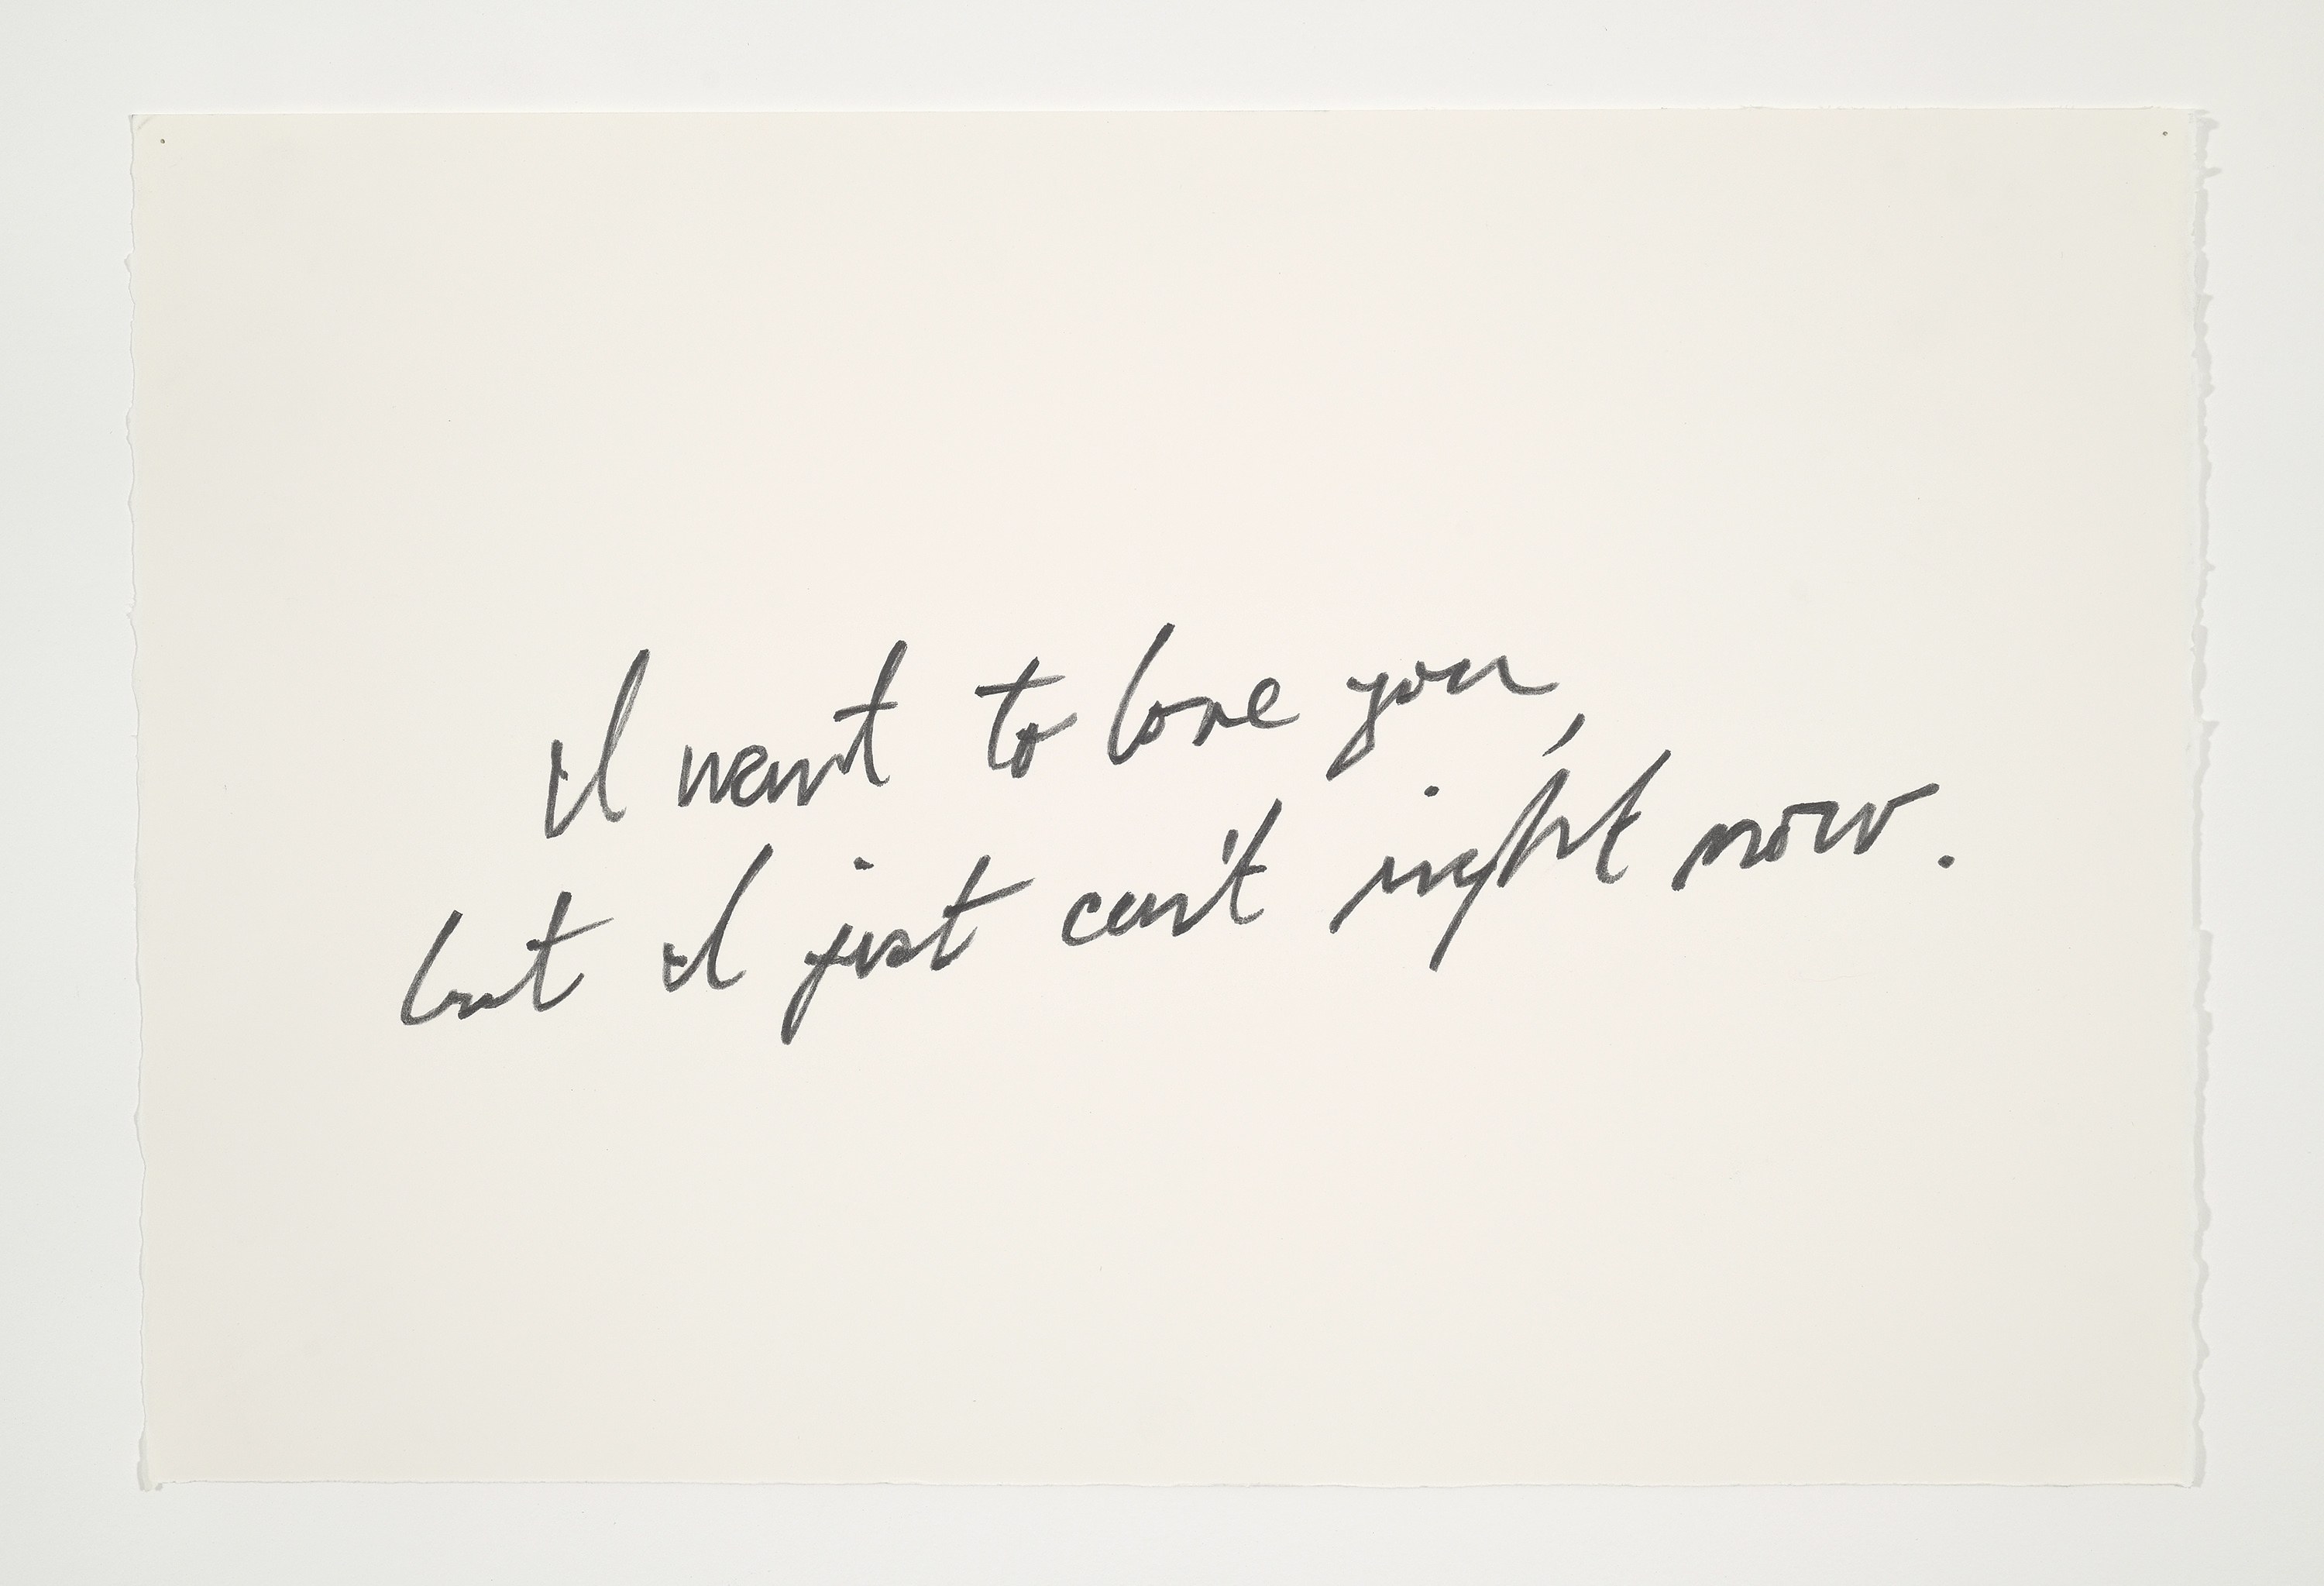 I want to love you,
but I just can't right now.